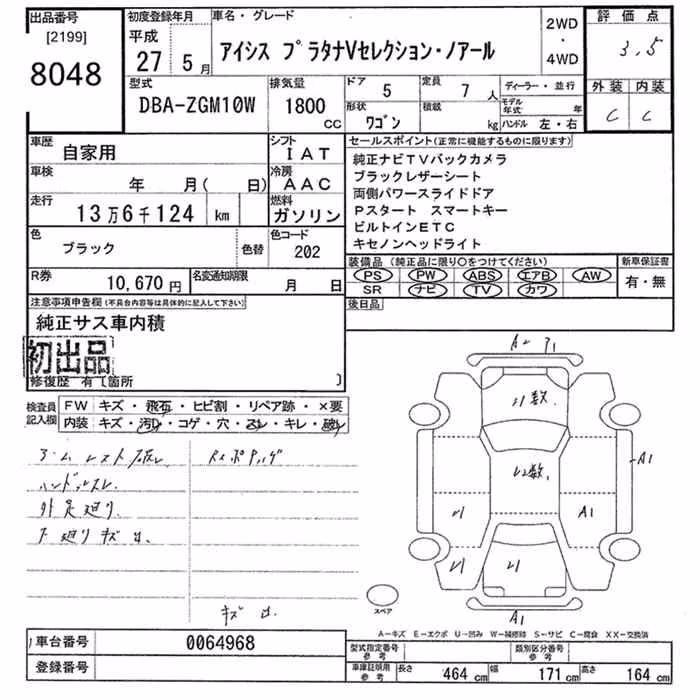 出品番号
[2199]
8048
初度登録年月
平成
27 5月
車名・グレード
アイシス プラタナVセレクション・ノアール
2WD
・
4WD
評価点
3.5
外装 内装
C C
型式
DBA-ZGM10W
排気量
1800
CC
ドア
5
定員
7人
形状
ワゴン
積載
kg
ディーラー・並行
モデル年式 年
ハンドル 左・右
車歴
自家用
シフト
IAT
車検
年 月( 日)
冷房
AAC
走行
13万6千124 km
燃料
ガソリン
色
ブラック
色替
色コード
202
R券
10,670円
名変通知期限
月 日
セールスポイント(正常に機能するものに限ります)
純正ナビTVバックカメラ
ブラックレザーシート
両側パワースライドドア
Pスタート スマートキー
ビルトインETC
キセノンヘッドライト
装備品(純正品に限り○をつけてください)
新車保証書
PS PW ABS エアB AW
SR ナビ TV カワ
有・無
後日品
注意事項申告欄(不具合内容等は具体的に記入して下さい)
純正サス車内積
初出品
修復歴 有〔箇所 〕
検査員記入欄
FW キズ・飛石・ヒビ割・リペア跡・×要
内装 キズ・汚れ・コゲ・穴・スレ・キレ・破れ
ハンドルスレ
外足廻り
下廻りキズ
A1
A1
A1
A1
スペア
A−キズ E−エクボ U−凹み W−補修跡 S−サビ C−腐食 XX−交換済
車台番号
0064968
登録番号
型式指定番号 参考
類別区分番号 参考
車庫証明用 参考
長さ 464 cm 幅 171 cm 高さ 164 cm